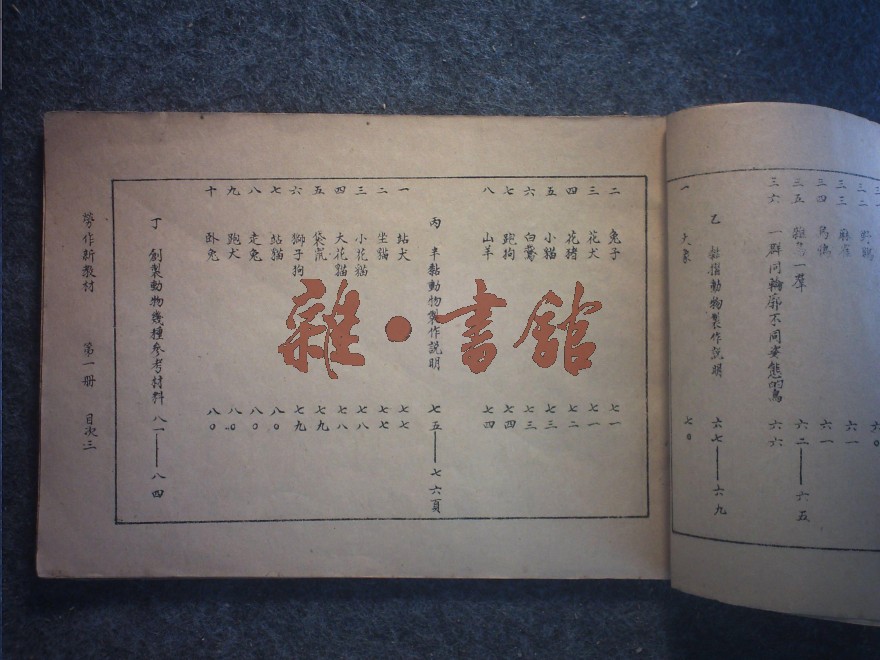 三二 野鴨
三三 麻雀 六一
三四 烏鴉 六一
三五 一羣 六二——六五
三六 一群同輪廓不同姿態的鳥 六六
乙 黏摺動物製作說明 六七——六九
一 大象 七〇
二 兔子 七一
三 花犬 七一
四 花猪 七二
五 小貓 七三
六 白鵞 七三
七 跑狗 七四
八 山羊 七四
丙 半黏動物製作說明 七五——七六頁
一 站犬 七七
二 坐貓 七七
三 小花貓 七八
四 大花貓 七八
五 袋鼠 七九
六 獅子狗 七九
七 站貓 八〇
八 走兔 八〇
九 跑犬 八〇
十 卧兔 八〇
丁 創製動物幾種參考材料 八一——八四
勞作新教材 第一册 目次三
雜·書館